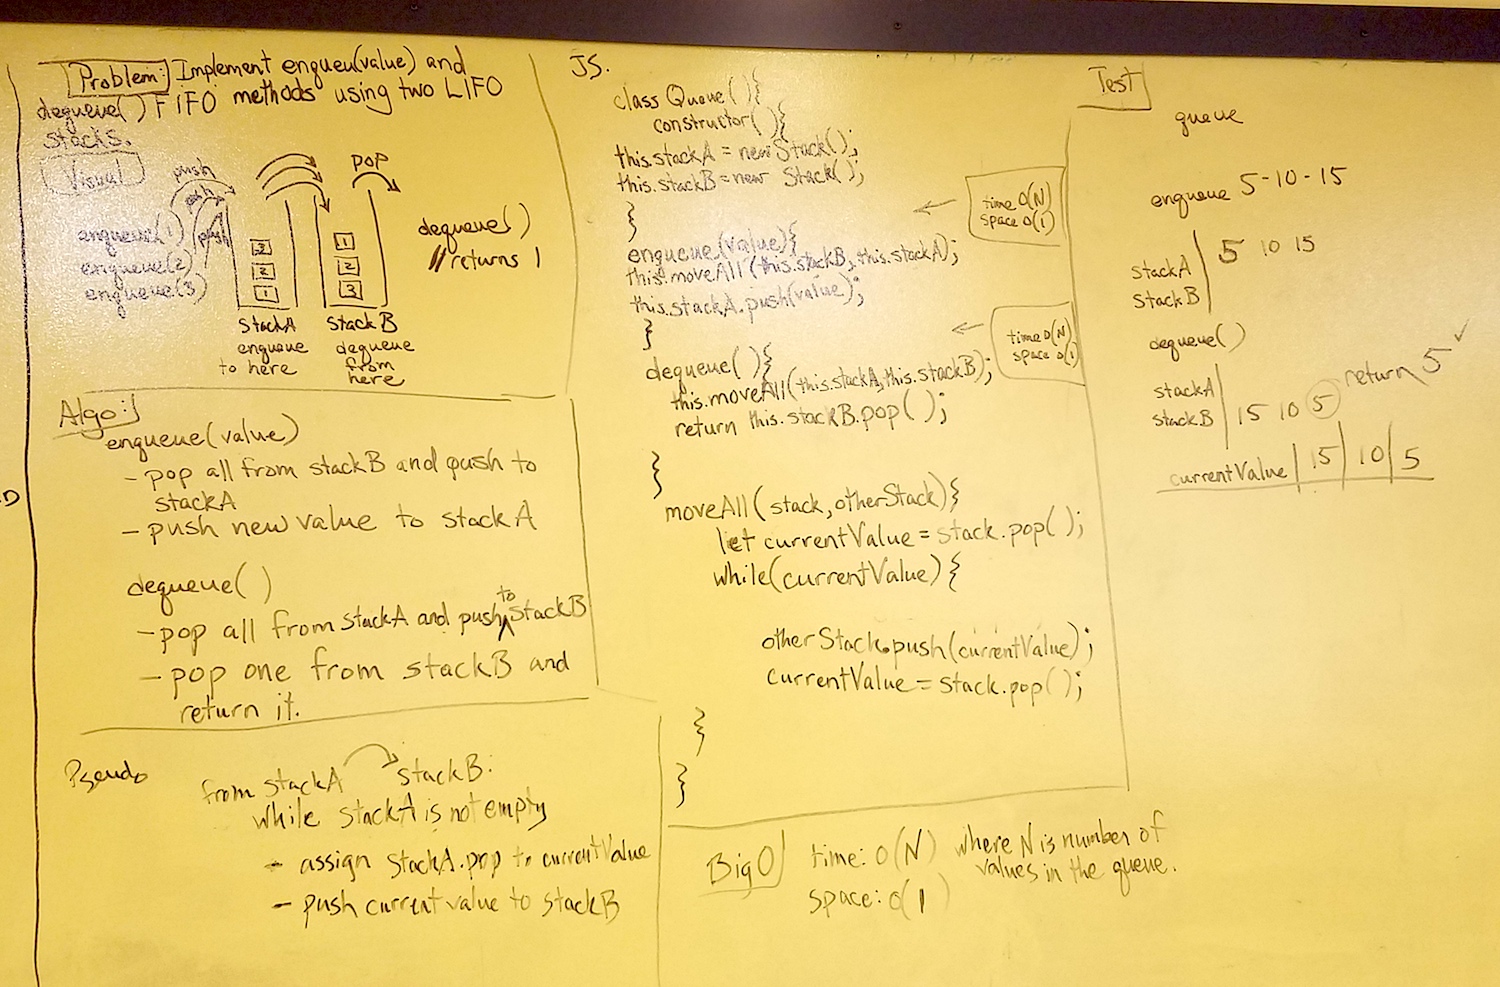 Problem: Implement enqueu(value) and
dequeue() FIFO methods using two LIFO
stacks.
Visual
push
push
push
POP
enqueue(1)
enqueue(2)
enqueue(3)
3
2
1
1
2
3
dequeue()
// returns 1
stackA
enqueue
to here
stackB
dequeue
from
here
Algo:
enqueue(value)
- pop all from stackB and push to
stackA
- push new value to stackA
dequeue()
- pop all from stackA and push to stackB
- pop one from stackB and
return it.
Pseudo
from stackA stackB:
while stackA is not empty
- assign stackA.pop to currentValue
- push current value to stackB
JS.
class Queue(){
constructor(){
this.stackA = new Stack();
this.stackB = new Stack();
}
enqueue(value){
this.moveAll(this.stackB, this.stackA);
this.stackA.push(value);
}
dequeue(){
this.moveAll(this.stackA, this.stackB);
return this.stackB.pop();
}
moveAll(stack, otherStack){
let currentValue = stack.pop();
while(currentValue){
otherStack.push(currentValue);
currentValue = stack.pop();
}
}
time O(N)
space O(1)
time O(N)
space O(1)
Big O
time: O(N) where N is number of
values in the queue.
space: O(1)
Test
queue
enqueue 5-10-15
stackA 5 10 15
stackB
dequeue()
stackA
stackB 15 10 5 return 5 ✓
currentValue 15 10 5
D